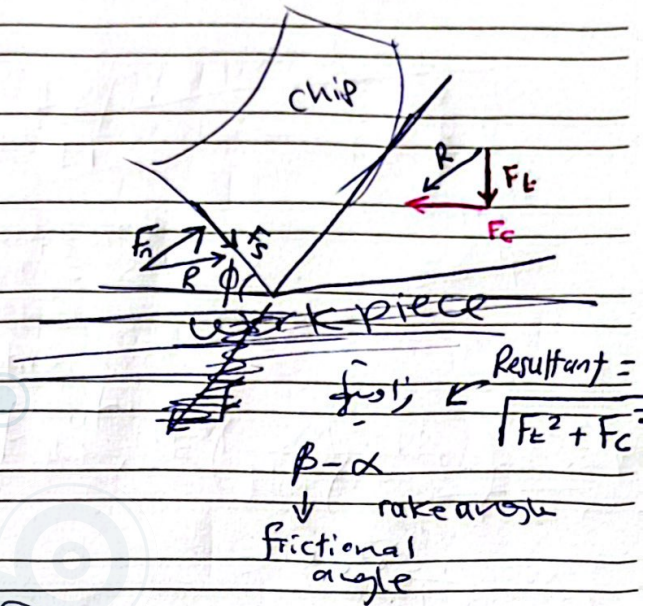 chip
R
Ft
Fc
Fn
Fs
R
ϕ
workpiece
Resultant =
√Ft² + Fc²
β-α
rake angle
frictional
angle